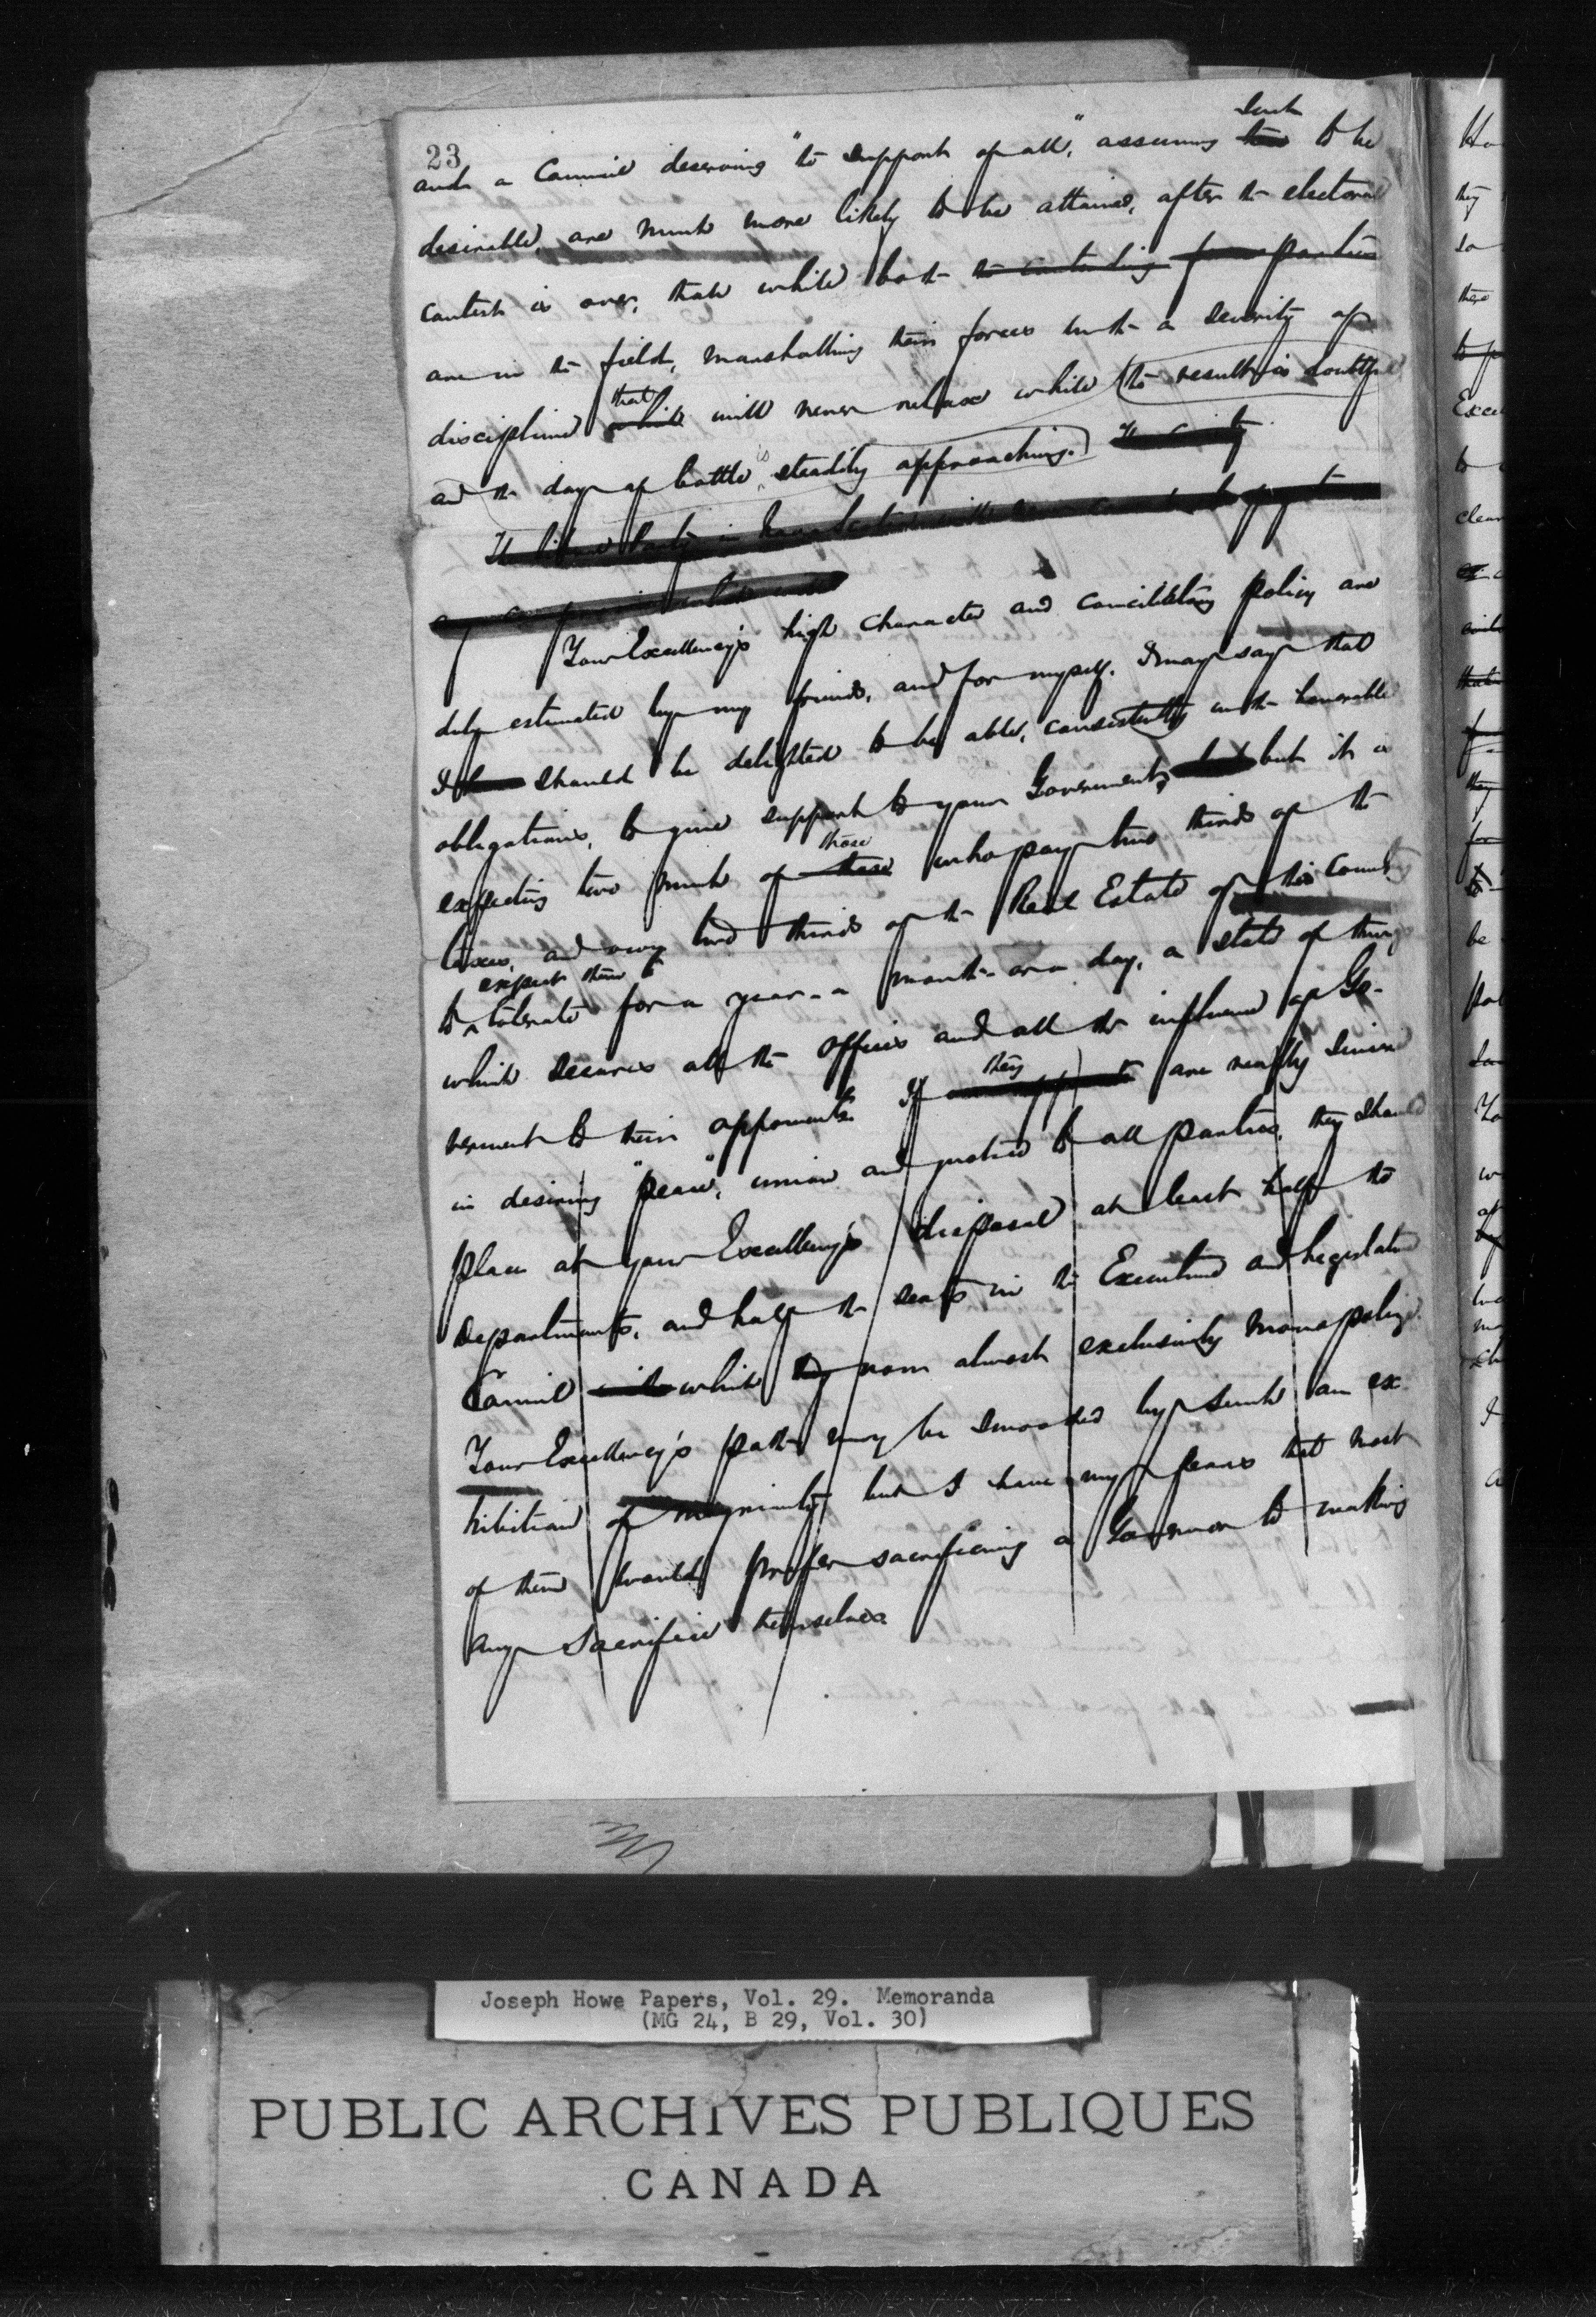 23
such
and a Council deserving "the support of all," assuming this to be
desirable, are much more likely to be attained, after the electoral
contest is over, than while both the contending parties
are in the field, marshalling their forces with a severity of
that
discipline which will never relax while the result is doubtful
and the day of battle is steadily approaching.
The Liberal Party in
Your Excellency's high character and conciliatory policy are
duly estimated by my friends, and for myself, I may say that
I should be delighted to be able, consistently with honorable
obligations, to give support to your Government, but it is
those
expecting two much of these who pay two thirds of the
taxes, and own two thirds of the Real Estate of this County
expect them to
to tolerate for a year - a month - or a day, a state of things
which secures all the offices and all the influence of Go-
they
vernment to their opponents. If are really sincere
in desiring "peace", union and justice to all parties, they should
place at your Excellency's disposal at least half the
Departments, and half the seats in the Executive and Legislative
Council which they now almost exclusively monopolize.
Your Excellency's path may be smoothed by such an ex-
hibition of magnimity but I have my fears that most
of them would prefer sacrificing a Governor to making
any sacrifice themselves
Joseph Howe Papers, Vol. 29. Memoranda
(MG 24, B 29, Vol. 30)
PUBLIC ARCHIVES PUBLIQUES
CANADA